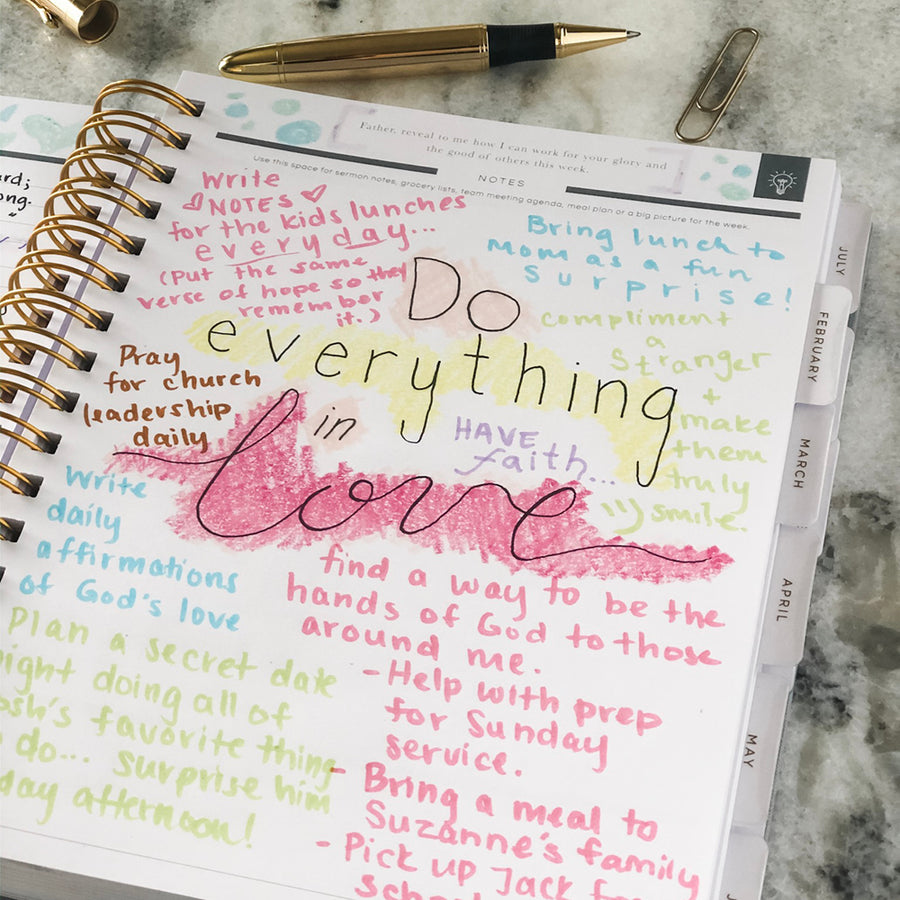 Father, reveal to me how I can work for your glory and
the good of others this week.
NOTES
Use this space for sermon notes, grocery lists, team meeting agenda, meal plan or a big picture for the week.
Write
NOTES
for the kids lunches
everyday...
(Put the same
verse of hope so they
remember
it.)
Bring lunch to
Mom as a fun
Surprise!
Do
everything
in
love
compliment
a
Stranger
+
make
them
truly
smile.
HAVE
faith...
Pray
for church
leadership
daily
Write
daily
affirmations
of God's love
Plan a secret date
night doing all of
favorite thing
do... surprise him
day afternoon!
find a way to be the
hands of God to those
around me.
- Help with prep
for Sunday
service.
- Bring a meal to
Suzanne's family
- Pick up Jack
JULY
FEBRUARY
MARCH
APRIL
MAY